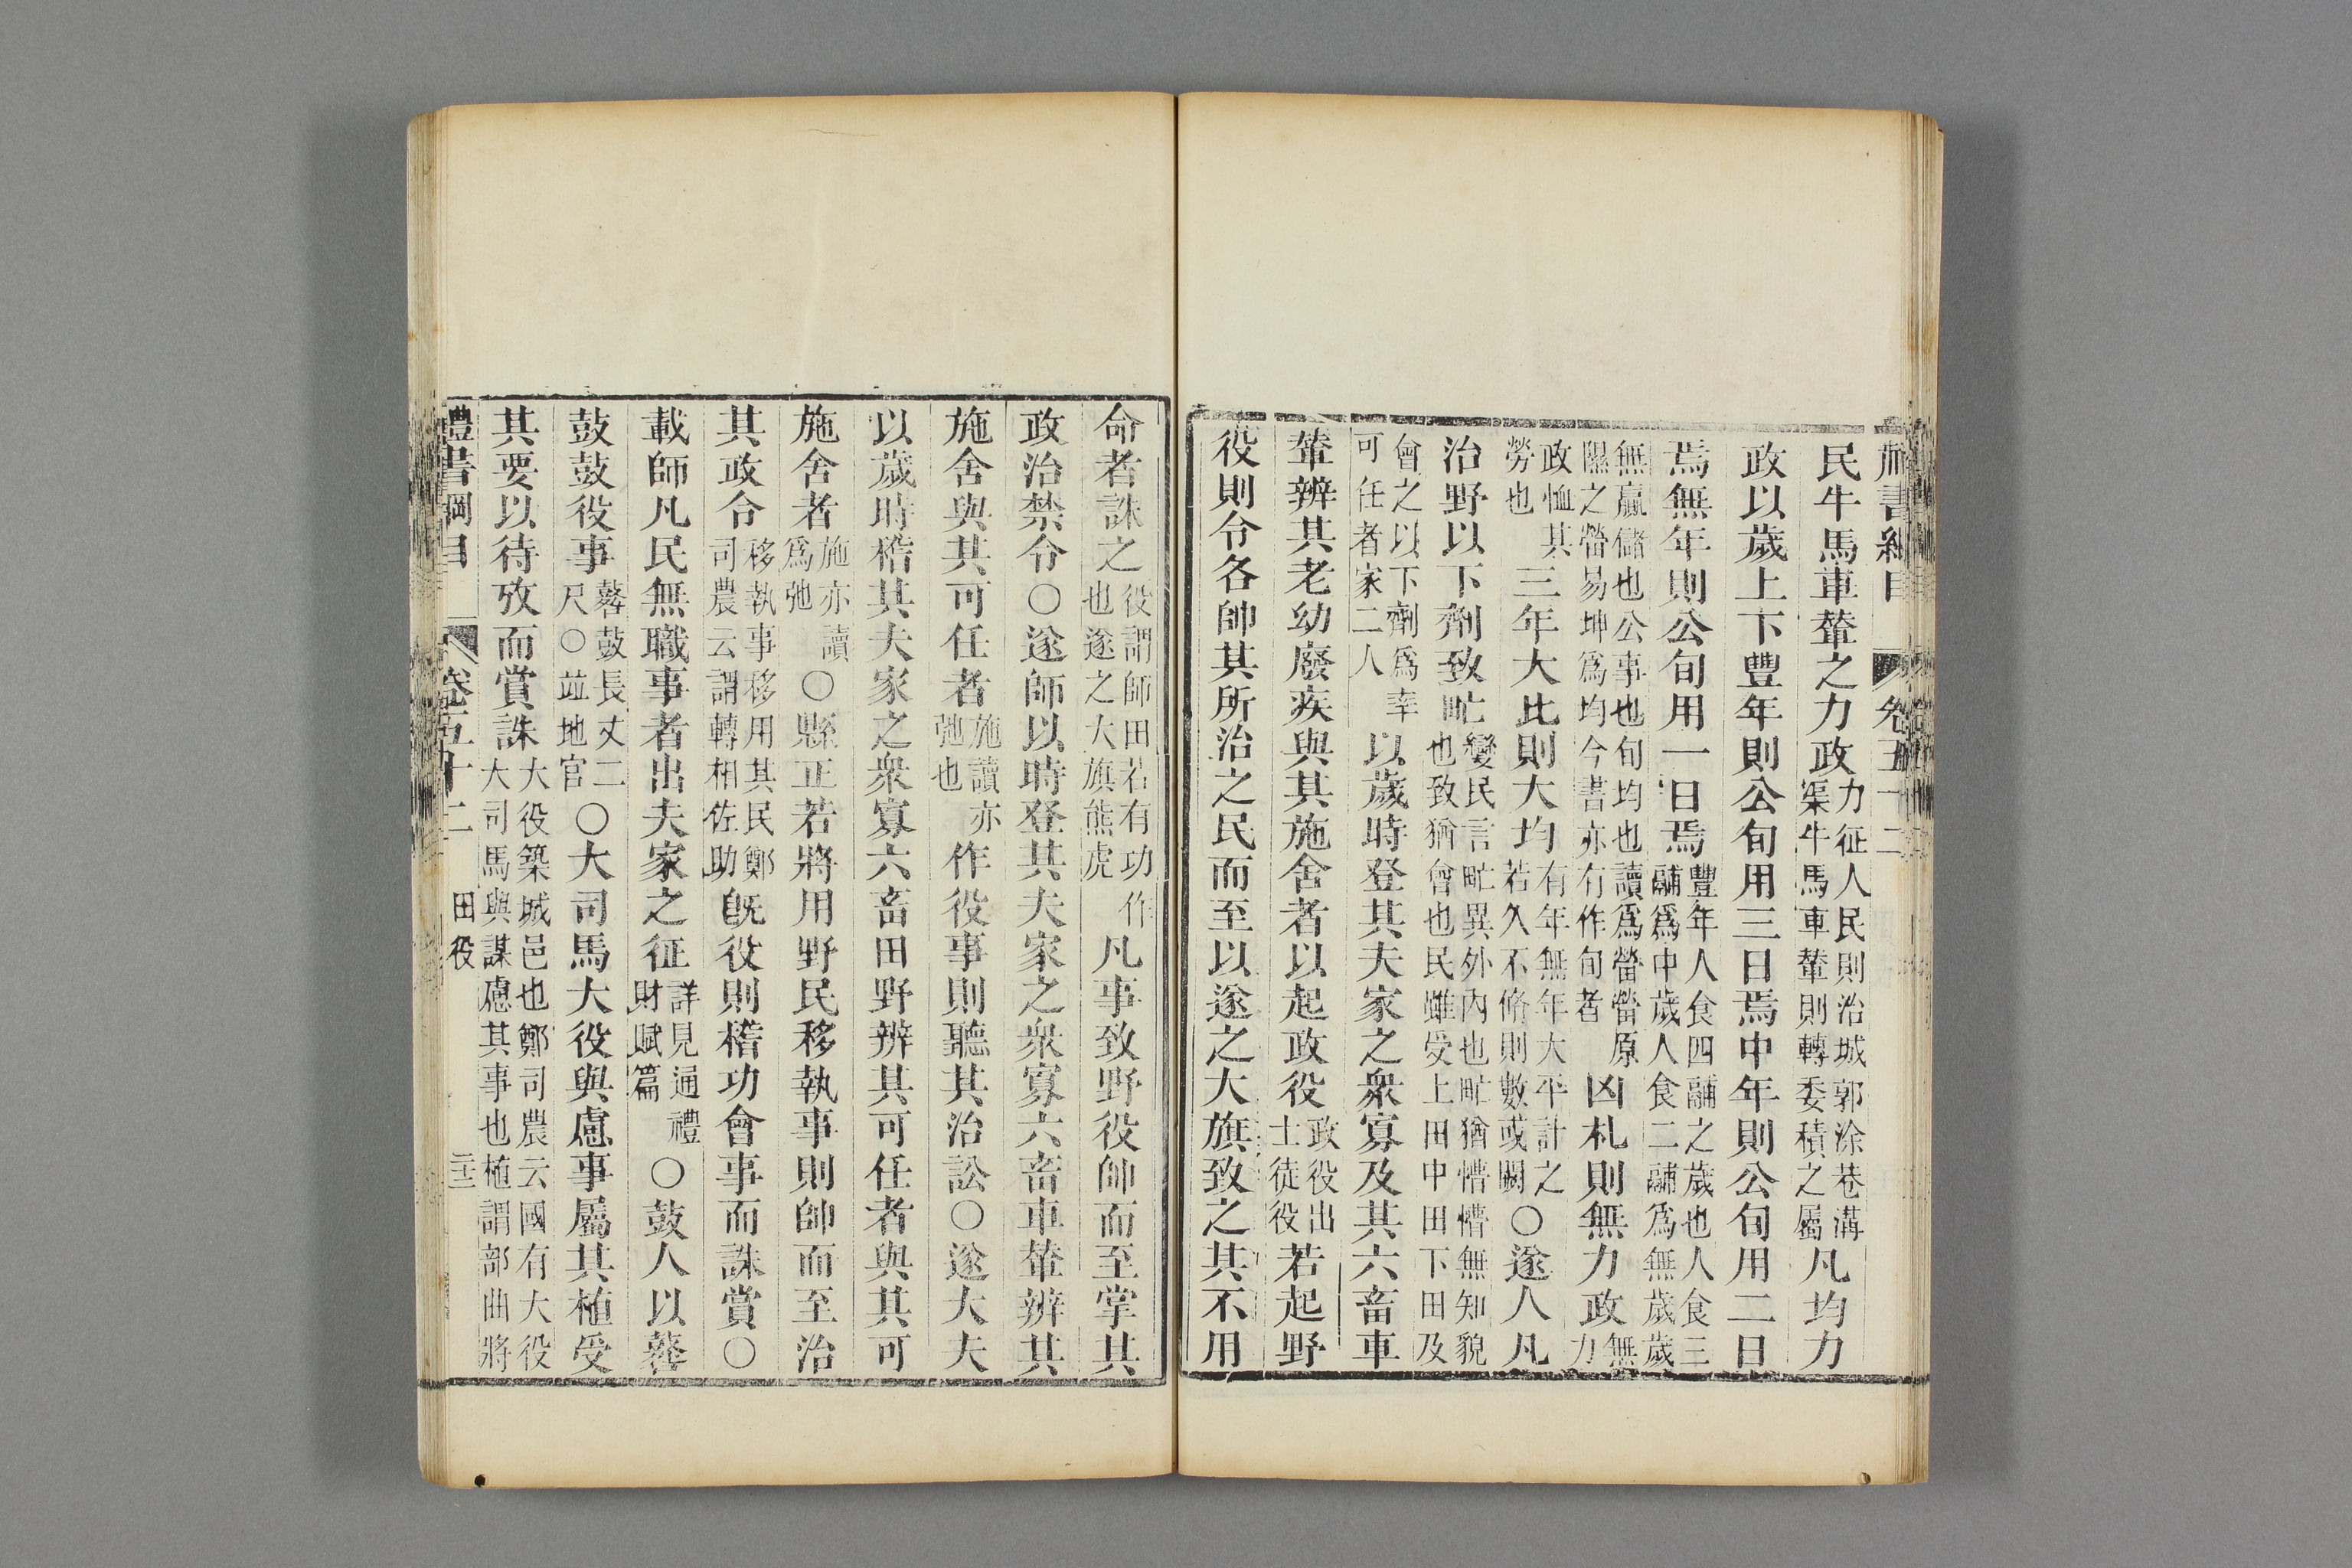 民牛馬車輦之力政力征人民則治城郭涂巷溝渠牛馬車輦則轉委積之屬凡均力
政以歲上下豐年則公旬用三日焉中年則公旬用二日
焉無年則公旬用一日焉豐年人食四鬴之歲也人食三鬴爲中歲人食二鬴爲無歲歲
無贏儲也公事也旬均也讀爲㽦㽦原隰之㽦易坤爲均今書亦有作旬者凶札則無力政無力
政恤其勞也三年大比則大均有年無年大平計之若久不脩則數或闕○遂人凡
治野以下劑致甿變民言甿異外內也甿猶懵懵無知貌也致猶會也民雖受上田中田下田及
會之以下劑爲率可任者家二人以歲時登其夫家之衆寡及其六畜車
輦辨其老幼廢疾與其施舍者以起政役政役出士徒役若起野
役則令各帥其所治之民而至以遂之大旗致之其不用
命者誅之役謂師田若有功作也遂之大旗熊虎凡事致野役帥而至掌其
政治禁令○遂師以時登其夫家之衆寡六畜車輦辨其
施舍與其可任者施讀亦弛也作役事則聽其治訟○遂大夫
以歲時稽其夫家之衆寡六畜田野辨其可任者與其可
施舍者施亦讀爲弛○縣正若將用野民移執事則帥而至治
其政令移執事移用其民鄭司農云謂轉相佐助旣役則稽功會事而誅賞○
載師凡民無職事者出夫家之征詳見通禮財賦篇○鼓人以鼛
鼓鼓役事鼛鼓長丈二尺○竝地官○大司馬大役與慮事屬其植受
其要以待攷而賞誅大役築城邑也鄭司農云國有大役大司馬與謀慮其事也植謂部曲將
禮書綱目 卷五十二 田役